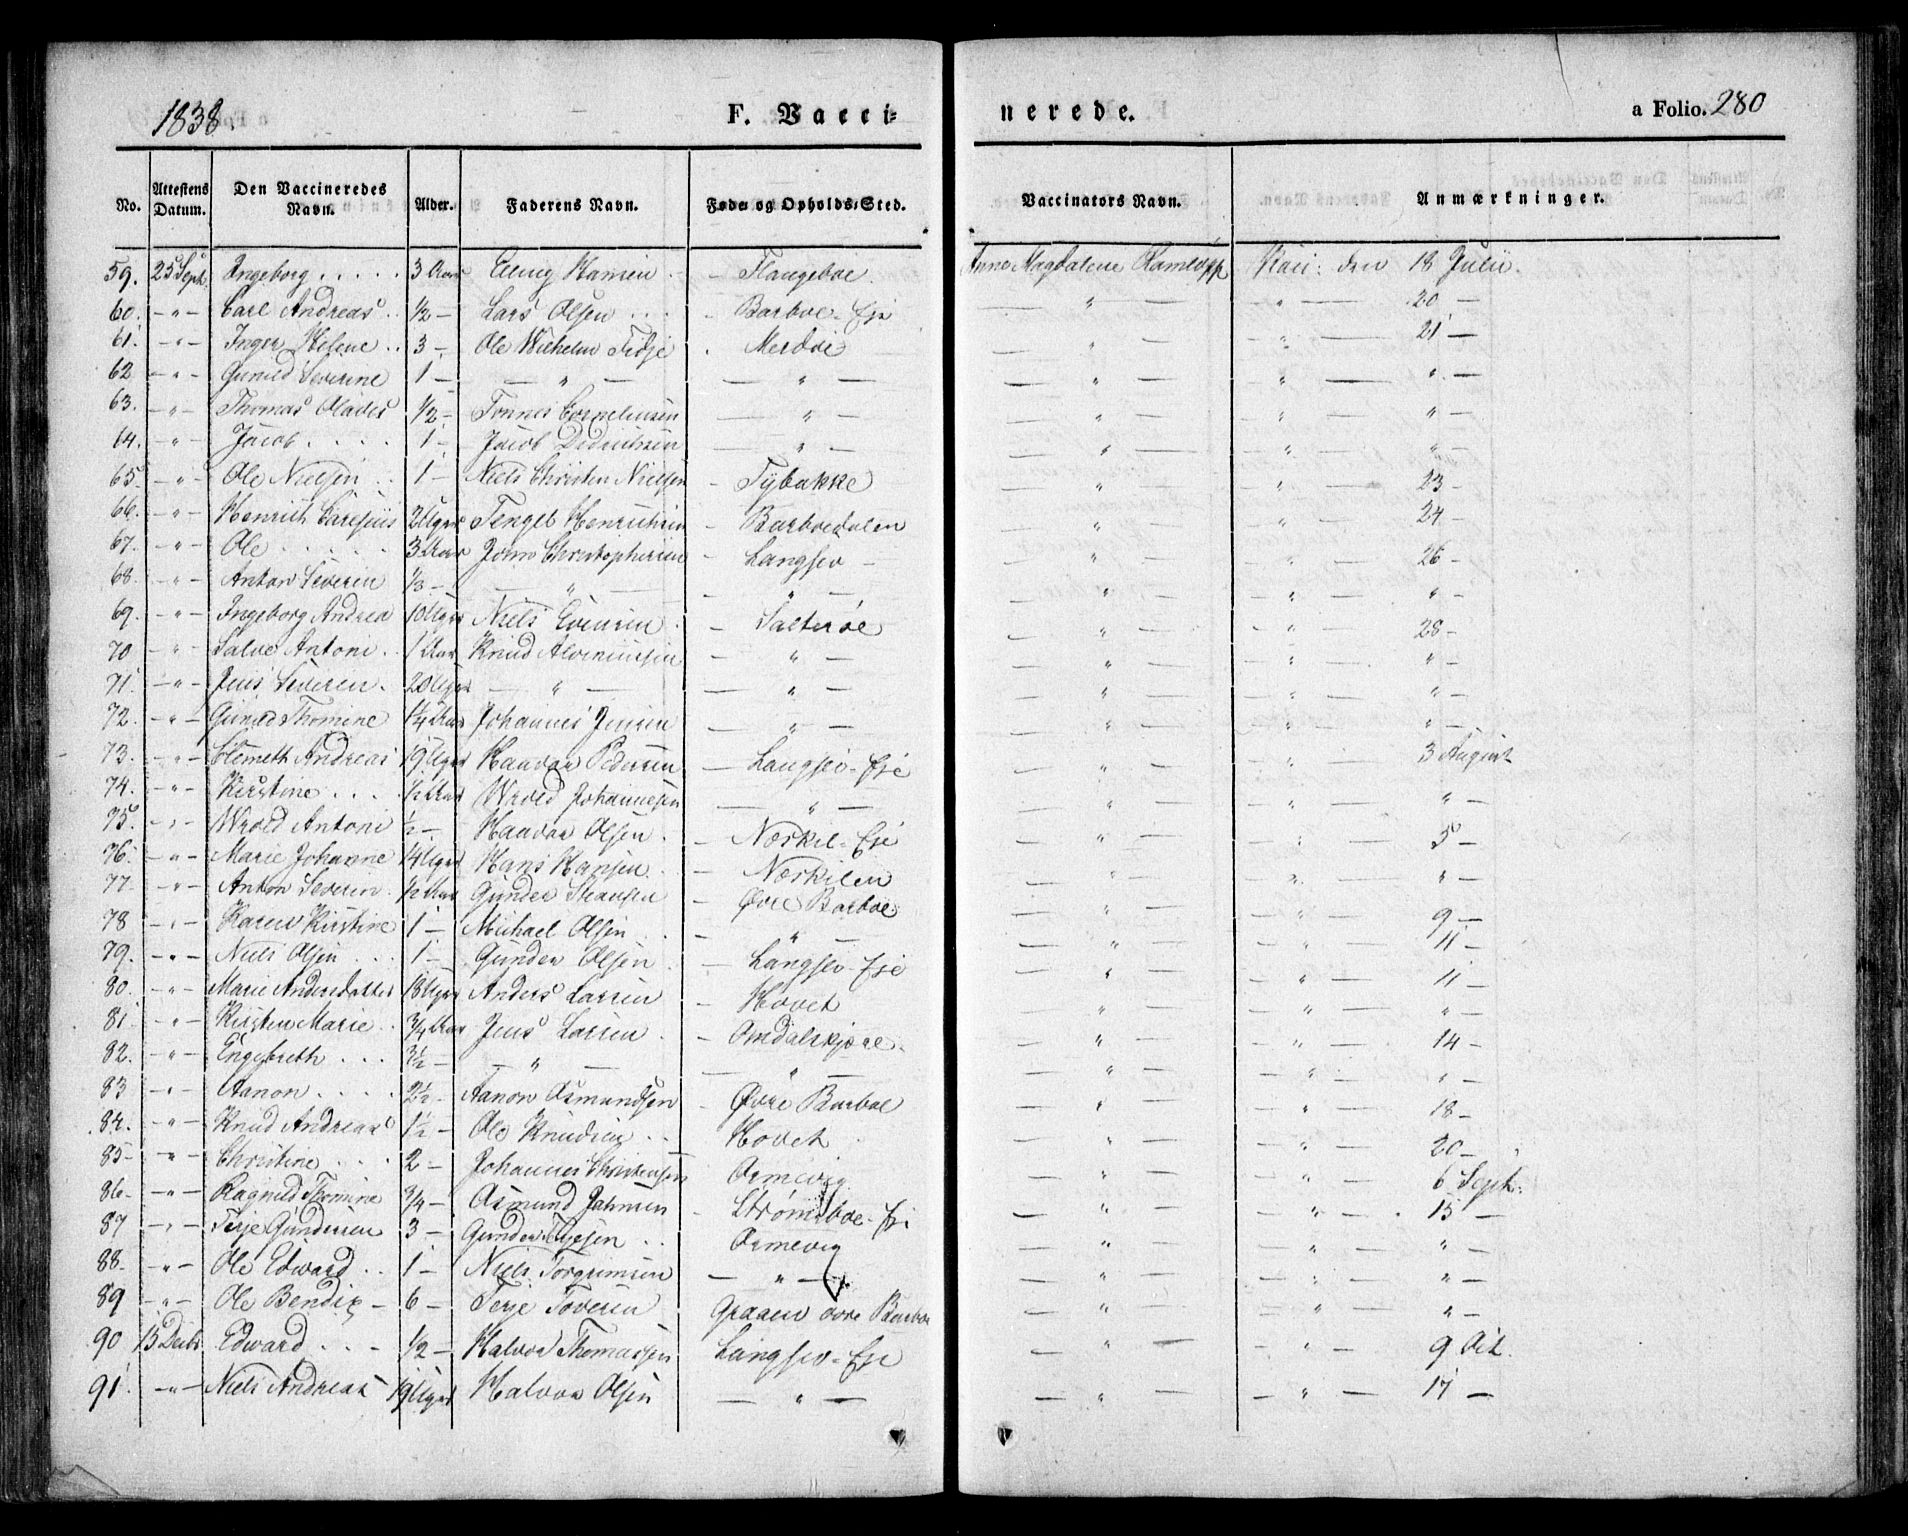 1838. F. Vacci= nerede. a Folio. 280
No. Attestens Datum. Den Vaccineredes Navn. Alder. Faderens Navn. Føde- og Opholds-Sted. Vaccinators Navn. Anmærkninger.
59. 25 Sept. Ingeborg . . . . . 3 Aar Elling Hansen - Flangeboe. Anne Magdalene Vacc: den 18 Julii.
60. -"- Carl Andreas . . 1/2 - Lars Olsen . . . . - Barboe-Eje — " — - " — 20 -
61. -"- Inger Helene . . 3 - Ole Wilhelm Tidje . Merdøe — " — - " — 21 -
62 -"- Gunild Severine 1 - — " — — " — — " — - " — " -
63. -"- Thomas Olaves 1/2 - Tønnes Corneliussen — " — — " — - " — " -
64. -"- Jacob . . . . 1 - Jacob Didrichsen — " — — " — - " — " -
65. -"- Ole Nielsen . . 1 - Niels Christen Nielsen - Tybakke — " — - " — 23 -
66. -"- Henrich 2 Uger Tengel Henrichsen - Barboedalen — " — - " — 24 -
67. -"- Ole . . . . . 3 Aar John Christophersen - Langsev - — " — - " — 26 -
68. -"- Anton Severin 1/3 - — " — — " — — " — - " — " -
69. -"- Ingeborg Andrea 10 Uger Niels Evensen . - Salterøe — " — - " — 28 -
70 -"- Salve Antoni . . 1 Aar Knud — " — — " — - " — " -
71. -"- Jens Severin . 20 Uger — " — — " — — " — - " — " -
72. -"- Gunild Thomine 1 1/4 Aar Johannes Jensen — " — — " — - " — " -
73. -"- Clemeth Andreas 19 Uger Haavor Pedersen — Langsev-Eje — " — - " — 3 August
74. -"- Kirstine . . . . 1/2 Aar Wrold Johannesen — " — — " — - " — " -
75. -"- Wrold Antoni 1/2 - Haavor Olsen . - Neskil-Eje — " — - " — 5 -
76. -"- Marie Johanne 14 Uger Hans Hansen . . - Neskilen — " — - " — " -
77. -"- Anton Severin . 1/2 Aar Gunder - Øvre Barboe — " — - " — 9 -
78 -"- Karen Kirstine 1 - Michael Olsen . . — " — — " — - " — 11 -
79. -"- Niels Olsen . . . 1 - Gunder Olsen . - Langsev-Eje — " — - " — 11 -
80. -"- Marie Andersdatter 18 Uger Anders Larsen - Hovet — " — - " — " -
81. -"- Kirsten Marie . . 3/4 Aar Jens Larsen . - Omdalskjære - — " — - " — 14 -
82. -"- Engebreth . . . 3 1/2 - — " — — " — — " — - " — " -
83 -"- Aanon . . . . 2 1/2 - Aanon Osmundsen - Øvre Barboe — " — - " — 18 -
84. -"- Knud Andreas 1 1/2 - Ole Knudsen . . - Hovet . — " — - " — 20 -
85 -"- Christine . . . 2 - Johannes Christensen Asmevig — " — - " — 6 Sept.
86. -"- Ragnild Thomine 3/4 - Osmund Jahnsen - Strømsboe-Eje — " — - " — 15 -
87 -"- Terje Gundersen 3 - Gunder Terjesen . . Asmevig — " — - " — " -
88. -"- Ole Edward . . 1 - Niels Torgrimsen — " — — " — - " — " -
89 -"- Ole Bendix - 6 - Terje Graaen øvre Barboe — " — - " — " -
90 13 Decbr Edward . . . - 1/2 - Halvor Thomassen Langsev-Eje — " — - " — 9 Oct.
91. -"- Niels Andreas 19 Uger Halvor Olsen — " — — " — - " — 17 -